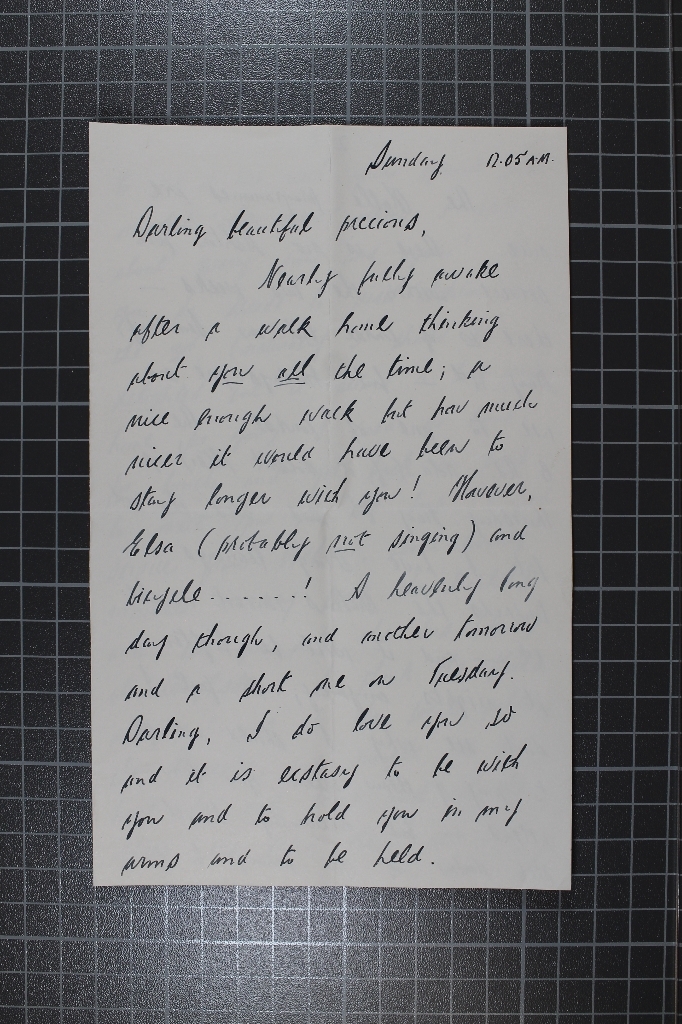 Sunday 12.05 A.M.
Darling beautiful precious,
Nearly fully awake
after a walk home thinking
about you all the time; a
nice enough walk but how much
nicer it would have been to
stay longer with you! However,
Elsa (probably not singing) and
bicycle ......! A heavenly long
day though, and another tomorrow
and a short one on Tuesday.
Darling, I do love you so
and it is ecstasy to be with
you and to hold you in my
arms and to be held.